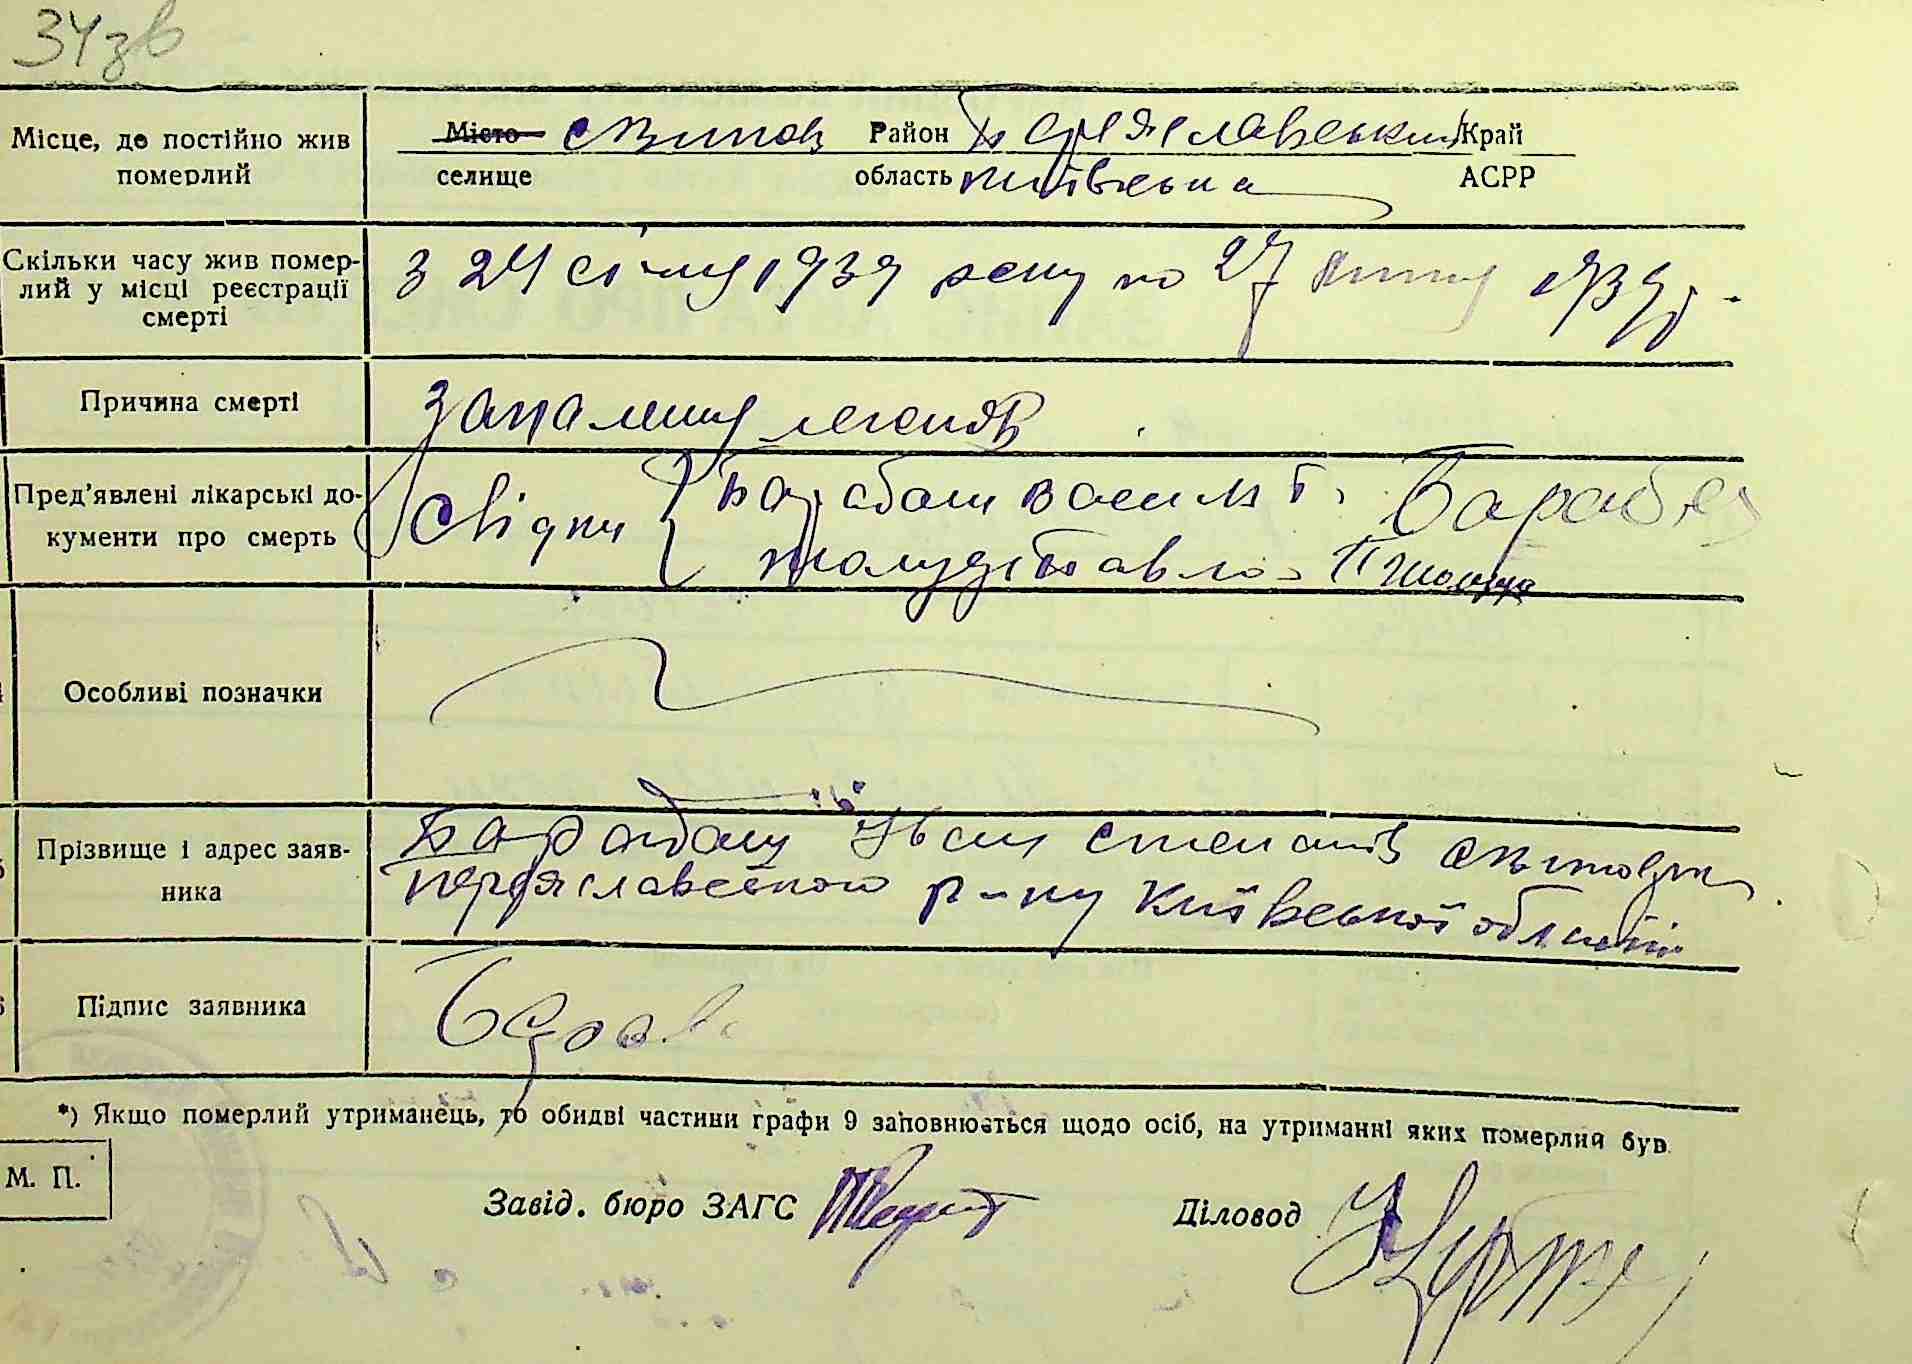 34зв
Місце, де постійно жив
померлий
Місто Район Переяславський Край
селище область Київська АСРР
Скільки часу жив помер-
лий у місці реєстрації
смерті
З 24 січня 1939 року по 27 1939 р.
Причина смерті
Запалення легенів
Пред'явлені лікарські до-
кументи про смерть
Свідки Барабаш Василь
Павло
Особливі позначки
Прізвище і адрес заяв-
ника
Барабаш Іван
Переяславського р-ну Київської області
Підпис заявника
*) Якщо померлий утриманець, то обидві частини графи 9 заповнюється щодо осіб, на утриманні яких померлий був.
М. П.
Завід. бюро ЗАГС Діловод